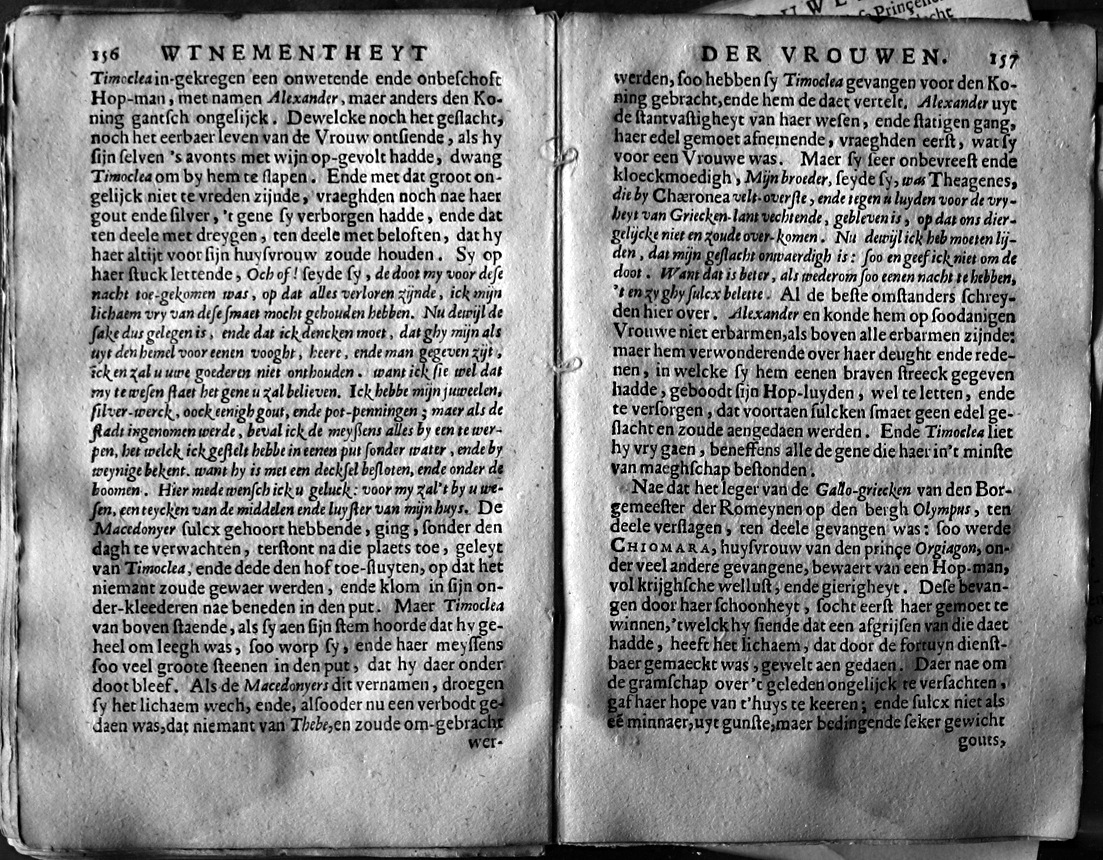 UWE
& Prinçe
acht
156 WTNEMENTHEYT
Timoclea in-gekregen een onwetende ende onbeſchoft
Hop-man, met namen Alexander, maer anders den Ko-
ning gantſch ongelijck. Dewelcke noch het geſlacht,
noch het eerbaer leven van de Vrouw ontſiende, als hy
ſijn ſelven 's avonts met wijn op-gevolt hadde, dwang
Timoclea om by hem te ſlapen. Ende met dat groot on-
gelijck niet te vreden zijnde, vraeghden noch nae haer
gout ende ſilver, 't gene ſy verborgen hadde, ende dat
ten deele met dreygen, ten deele met beloften, dat hy
haer altijt voor ſijn huyſvrouw zoude houden. Sy op
haer ſtuck lettende, Och of! ſeyde ſy, de doot my voor deſe
nacht toe-gekomen was, op dat alles verloren zijnde, ick mijn
lichaem vry van deſe ſmaet mocht gehouden hebben. Nu dewijl de
ſake dus gelegen is, ende dat ick dencken moet, dat ghy mijn als
uyt den hemel voor eenen vooght, heere, ende man gegeven zijt,
ick en zal u uwe goederen niet onthouden. want ick ſie wel dat
my te weſen ſtaet het gene u zal believen. Ick hebbe mijn juweelen,
ſilver-werck, oock eenigh gout, ende pot-penningen; maer als de
ſtadt ingenomen werde, beval ick de meyßens alles by een te wer-
pen, het welck ick geſtelt hebbe in eenen put ſonder water, ende by
weynige bekent. want hy is met een deckſel beſloten, ende onder de
boomen. Hier mede wenſch ick u geluck: voor my zal't by u we-
ſen, een teycken van de middelen ende luyſter van mijn huys. De
Macedonyer ſulcx gehoort hebbende, ging, ſonder den
dagh te verwachten, terſtont na die plaets toe, geleyt
van Timoclea, ende dede den hof toe-ſluyten, op dat het
niemant zoude gewaer werden, ende klom in ſijn on-
der-kleederen nae beneden in den put. Maer Timoclea
van boven ſtaende, als ſy aen ſijn ſtem hoorde dat hy ge-
heel om leegh was, ſoo worp ſy, ende haer meyſſens
ſoo veel groote ſteenen in den put, dat hy daer onder
doot bleef. Als de Macedonyers dit vernamen, droegen
ſy het lichaem wech, ende, alſooder nu een verbodt ge-
daen was, dat niemant van Thebe, en zoude om-gebracht
wer-
DER VROUWEN. 157
werden, ſoo hebben ſy Timoclea gevangen voor den Ko-
ning gebracht, ende hem de daet vertelt. Alexander uyt
de ſtantvaſtigheyt van haer weſen, ende ſtatigen gang,
haer edel gemoet afnemende, vraeghden eerſt, wat ſy
voor een Vrouwe was. Maer ſy ſeer onbevreeſt ende
kloeckmoedigh, Mijn broeder, ſeyde ſy, was Theagenes,
die by Chæronea velt-overſte, ende tegen u luyden voor de vry-
heyt van Griecken-lant vechtende, gebleven is, op dat ons dier-
gelijcke niet en zoude over-komen. Nu dewijl ick heb moeten lij-
den, dat mijn geſlacht onwaerdigh is: ſoo en geef ick niet om de
doot. Want dat is beter, als wederom ſoo eenen nacht te hebben,
't en zy ghy ſulcx belette. Al de beſte omſtanders ſchrey-
den hier over. Alexander en konde hem op ſoodanigen
Vrouwe niet erbarmen, als boven alle erbarmen zijnde:
maer hem verwonderende over haer deught ende rede-
nen, in welcke ſy hem eenen braven ſtreeck gegeven
hadde, geboodt ſijn Hop-luyden, wel te letten, ende
te verſorgen, dat voortaen ſulcken ſmaet geen edel ge-
ſlacht en zoude aengedaen werden. Ende Timoclea liet
hy vry gaen, beneffens alle de gene die haer in't minſte
van maeghſchap beſtonden.
Nae dat het leger van de Gallo-griecken van den Bor-
gemeeſter der Romeynen op den bergh Olympus, ten
deele verſlagen, ten deele gevangen was: ſoo werde
CHIOMARA, huyſvrouw van den prinçe Orgiagon, on-
der veel andere gevangene, bewaert van een Hop-man,
vol krijghſche welluſt, ende gierigheyt. Deſe bevan-
gen door haer ſchoonheyt, ſocht eerſt haer gemoet te
winnen, 'twelck hy ſiende dat een afgrijſen van die daet
hadde, heeft het lichaem, dat door de fortuyn dienſt-
baer gemaeckt was, gewelt aen gedaen. Daer nae om
de gramſchap over 't geleden ongelijck te verſachten,
gaf haer hope van t'huys te keeren; ende ſulcx niet als
eẽ minnaer, uyt gunſte, maer bedingende ſeker gewicht
gouts,